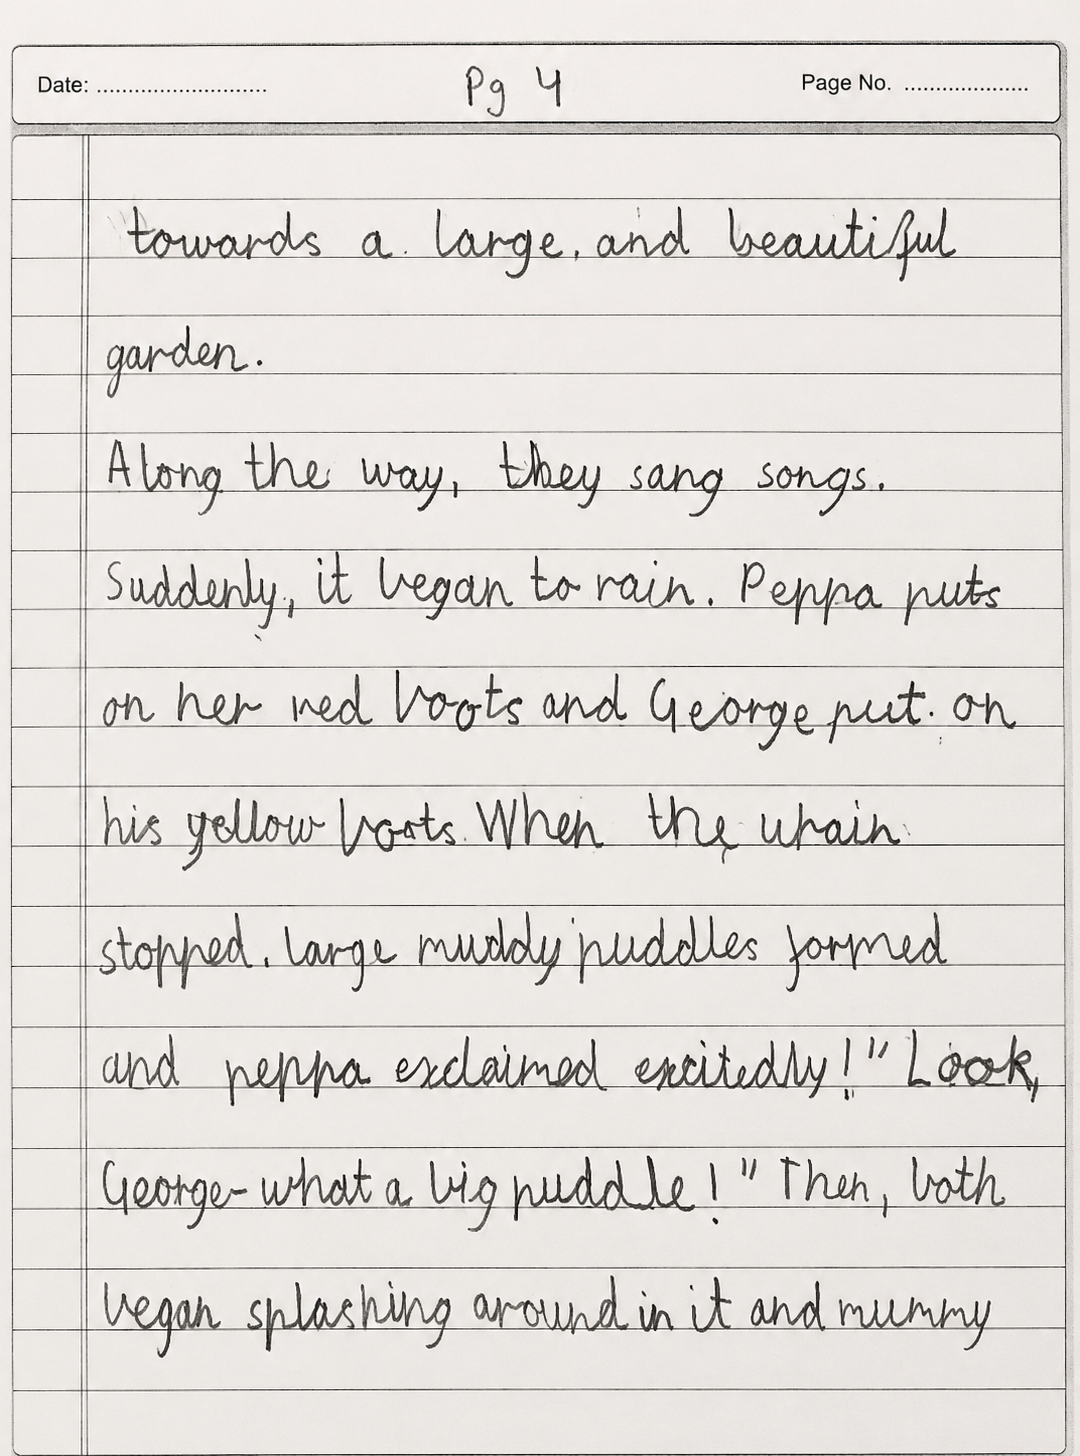 Date: ............................ Pg 4 Page No. ....................
towards a large, and beautiful
garden.
Along the way, they sang songs.
Suddenly, it began to rain. Peppa puts
on her red boots and George put on
his yellow boots. When the urain
stopped, large muddy puddles formed
and peppa exclaimed excitedly! "Look,
George-what a big puddle!" Then, both
began splashing around in it and mummy